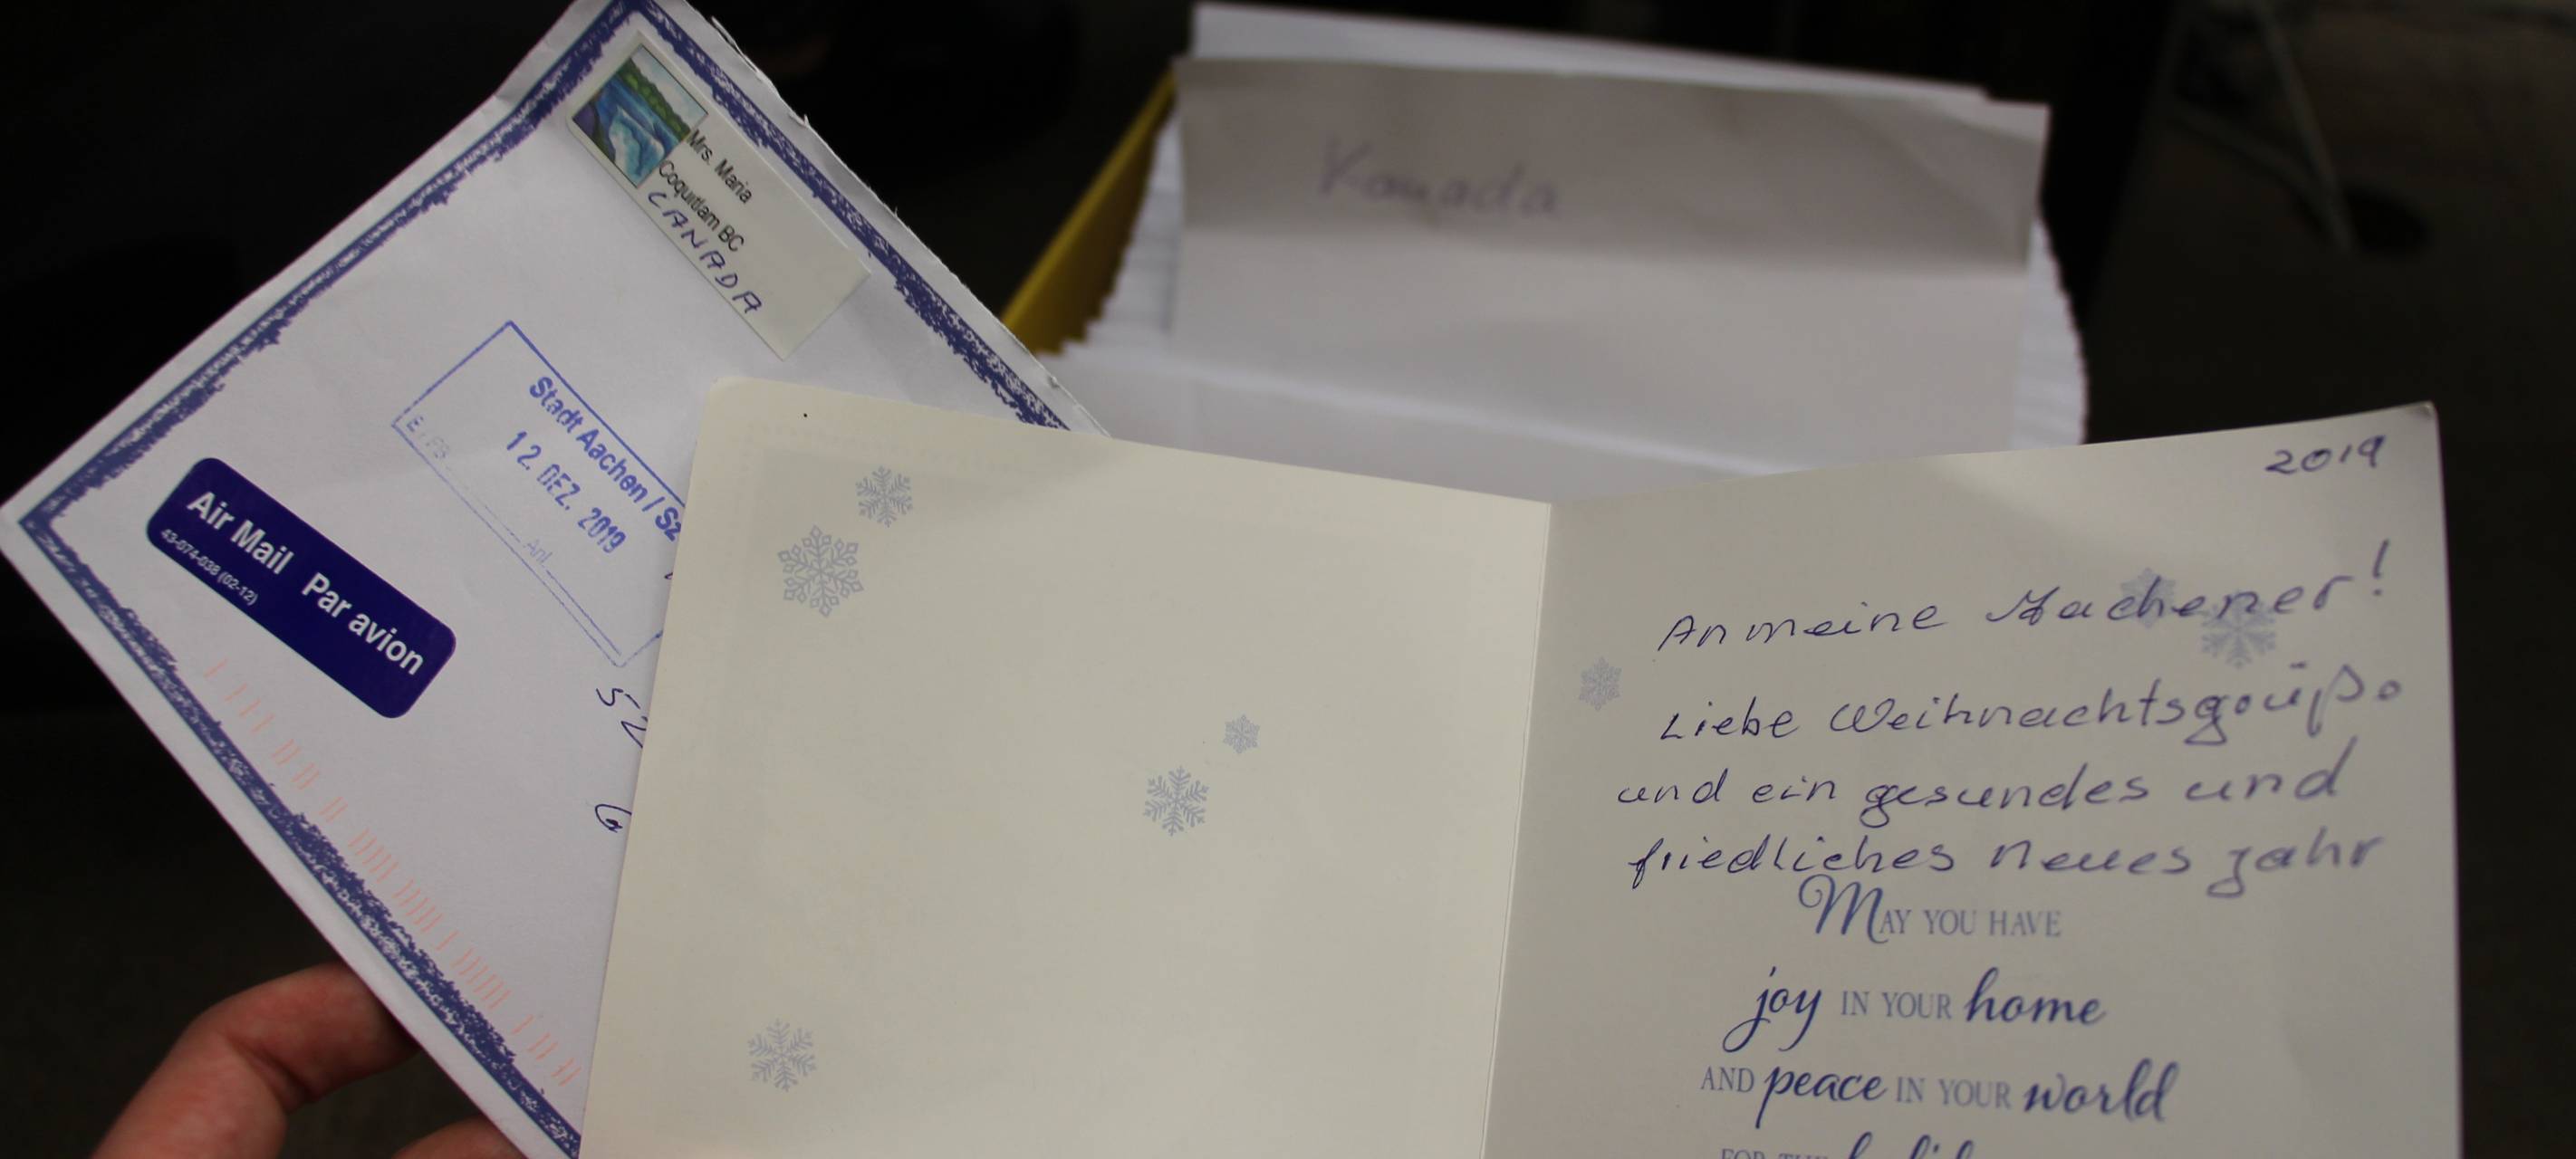 Mrs. Maria
Coquitlam BC
CANADA
Stadt Aachen / S2
12. DEZ. 2019
Anl.
Air Mail Par avion
43-074-038 (02-12)
52
Kanada
2019
An meine Aachener!
Liebe Weihnachtsgrüße
und ein gesundes und
friedliches neues Jahr
MAY YOU HAVE
joy IN YOUR home
AND peace IN YOUR world
FOR THE